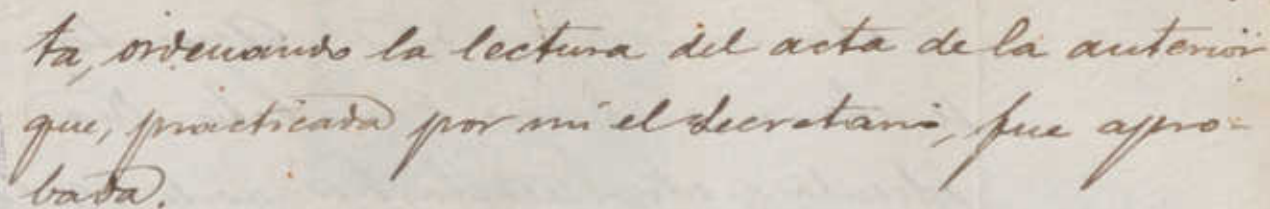 ta, ordenando la lectura del acta de la anterior
que, practicada por mi el Secretario, fue apro-
bada.